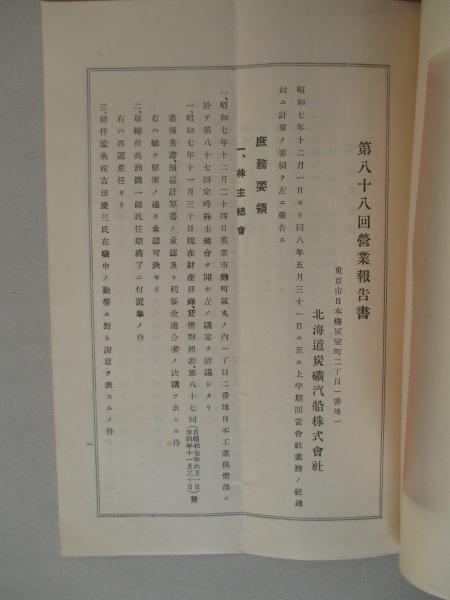 第八十八回營業報告書
東京市日本橋區室町二丁目一番地一
北海道炭礦汽船株式會社
昭和七年十二月一日ヨリ同八年五月三十一日ニ至ル上半期間當會社業務ノ經過
竝ニ計算ノ要領ヲ左ニ報告ス
庶務要領
一、株主總會
一、昭和七年十二月二十四日東京市麹町區丸ノ內一丁目二番地日本工業俱樂部ニ
於テ第八十七回定時株主總會ヲ開キ左ノ議案ヲ附議シタリ
一、昭和七年十一月三十日現在財產目錄、貸借對照表、第八十七回(自昭和七年六月一日至同年十一月三十日)營
業報告書、損益計算書ノ承認及ヒ利益金處分案ノ決議ヲ求ムル件
右ハ總テ原案ノ通リ承認可決セリ
二、取締役 洲 一郎氏任期滿了ニ付選擧ノ件
右ハ再選重任セリ
三、前任監査役吉田慶三氏在職中ノ勤勞ニ對シ謝意ヲ表スルノ件
一